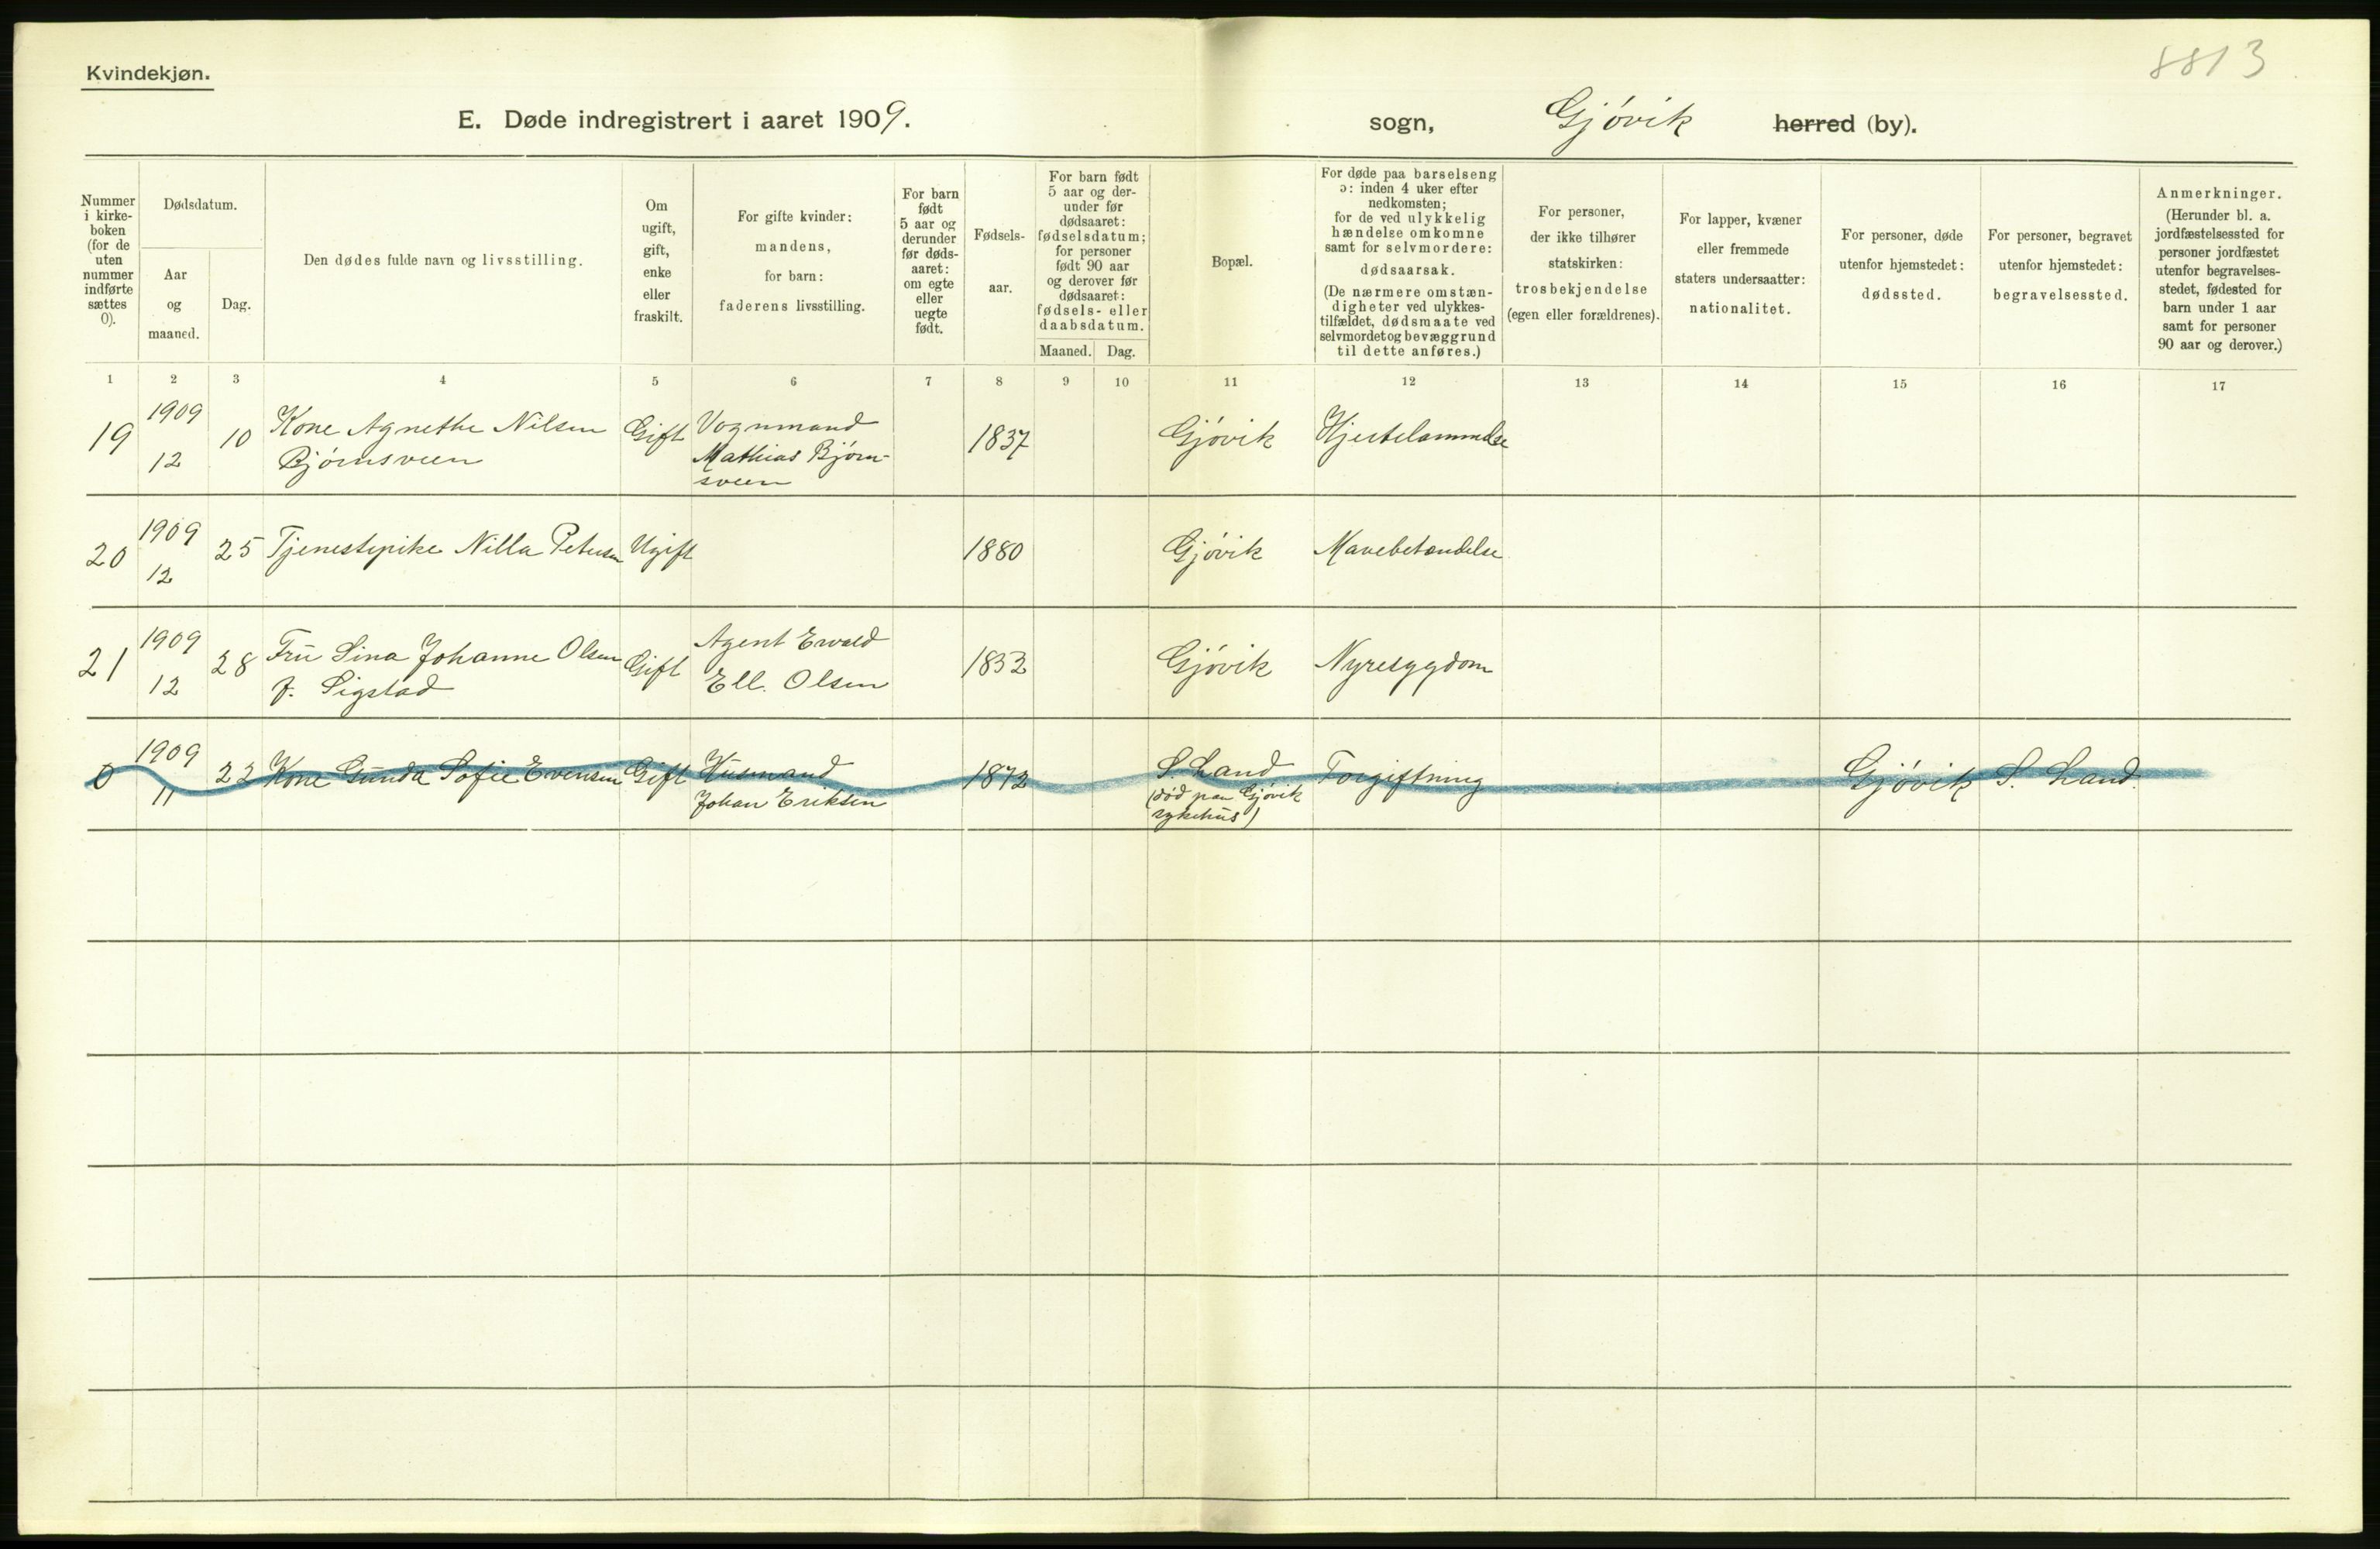 8813
Kvindekjøn.
E. Døde indregistrert i aaret 1909.
sogn, Gjøvik herred (by).
Nummer
i kirke-
boken
(for de
uten
nummer
indførte
sættes
0).
Dødsdatum.
Aar
og
maaned.
Dag.
Den dødes fulde navn og livsstilling.
Om
ugift,
gift,
enke
eller
fraskilt.
For gifte kvinder:
mandens,
for barn:
faderens livsstilling.
For barn
født
5 aar og
derunder
før døds-
aaret:
om egte
eller
uegte
født.
Fødsels-
aar.
For barn født
5 aar og der-
under før
dødsaaret:
fødselsdatum;
for personer
født 90 aar
og derover før
dødsaaret:
fødsels- eller
daabsdatum.
Maaned. Dag.
Bopæl.
For døde paa barselseng
ɔ: inden 4 uker efter
nedkomsten;
for de ved ulykkelig
hændelse omkomne
samt for selvmordere:
dødsaarsak.
(De nærmere omstæn-
digheter ved ulykkes-
tilfældet, dødsmaate ved
selvmordet og bevæggrund
til dette anføres.)
For personer,
der ikke tilhører
statskirken:
trosbekjendelse
(egen eller forældrenes).
For lapper, kvæner
eller fremmede
staters undersaatter:
nationalitet.
For personer, døde
utenfor hjemstedet:
dødssted.
For personer, begravet
utenfor hjemstedet:
begravelsessted.
Anmerkninger.
(Herunder bl. a.
jordfæstelsessted for
personer jordfæstet
utenfor begravelses-
stedet, fødested for
barn under 1 aar
samt for personer
90 aar og derover.)
1 2 3 4 5 6 7 8 9 10 11 12 13 14 15 16 17
19 1909 12 10 Kone Agnethe Nilsen Gift Vognmand 1837 Gjøvik Hjertelammelse
Bjørnsveen Mathias Bjørn-
sveen
20 1909 12 25 Tjenestepike Nilla Petersen Ugift 1880 Gjøvik Mavebetændelse
21 1909 12 28 Fru Sina Johanne Olsen Gift Agent Ewald 1852 Gjøvik Nyresygdom
f. Sigstad Ell. Olsen
0 1909 11 22 Kone Gunda Sofie Evensen Gift Husmand 1872 S. Land Forgiftning Gjøvik S. Land.
Johan Eriksen (død paa Gjøvik
sykehus)